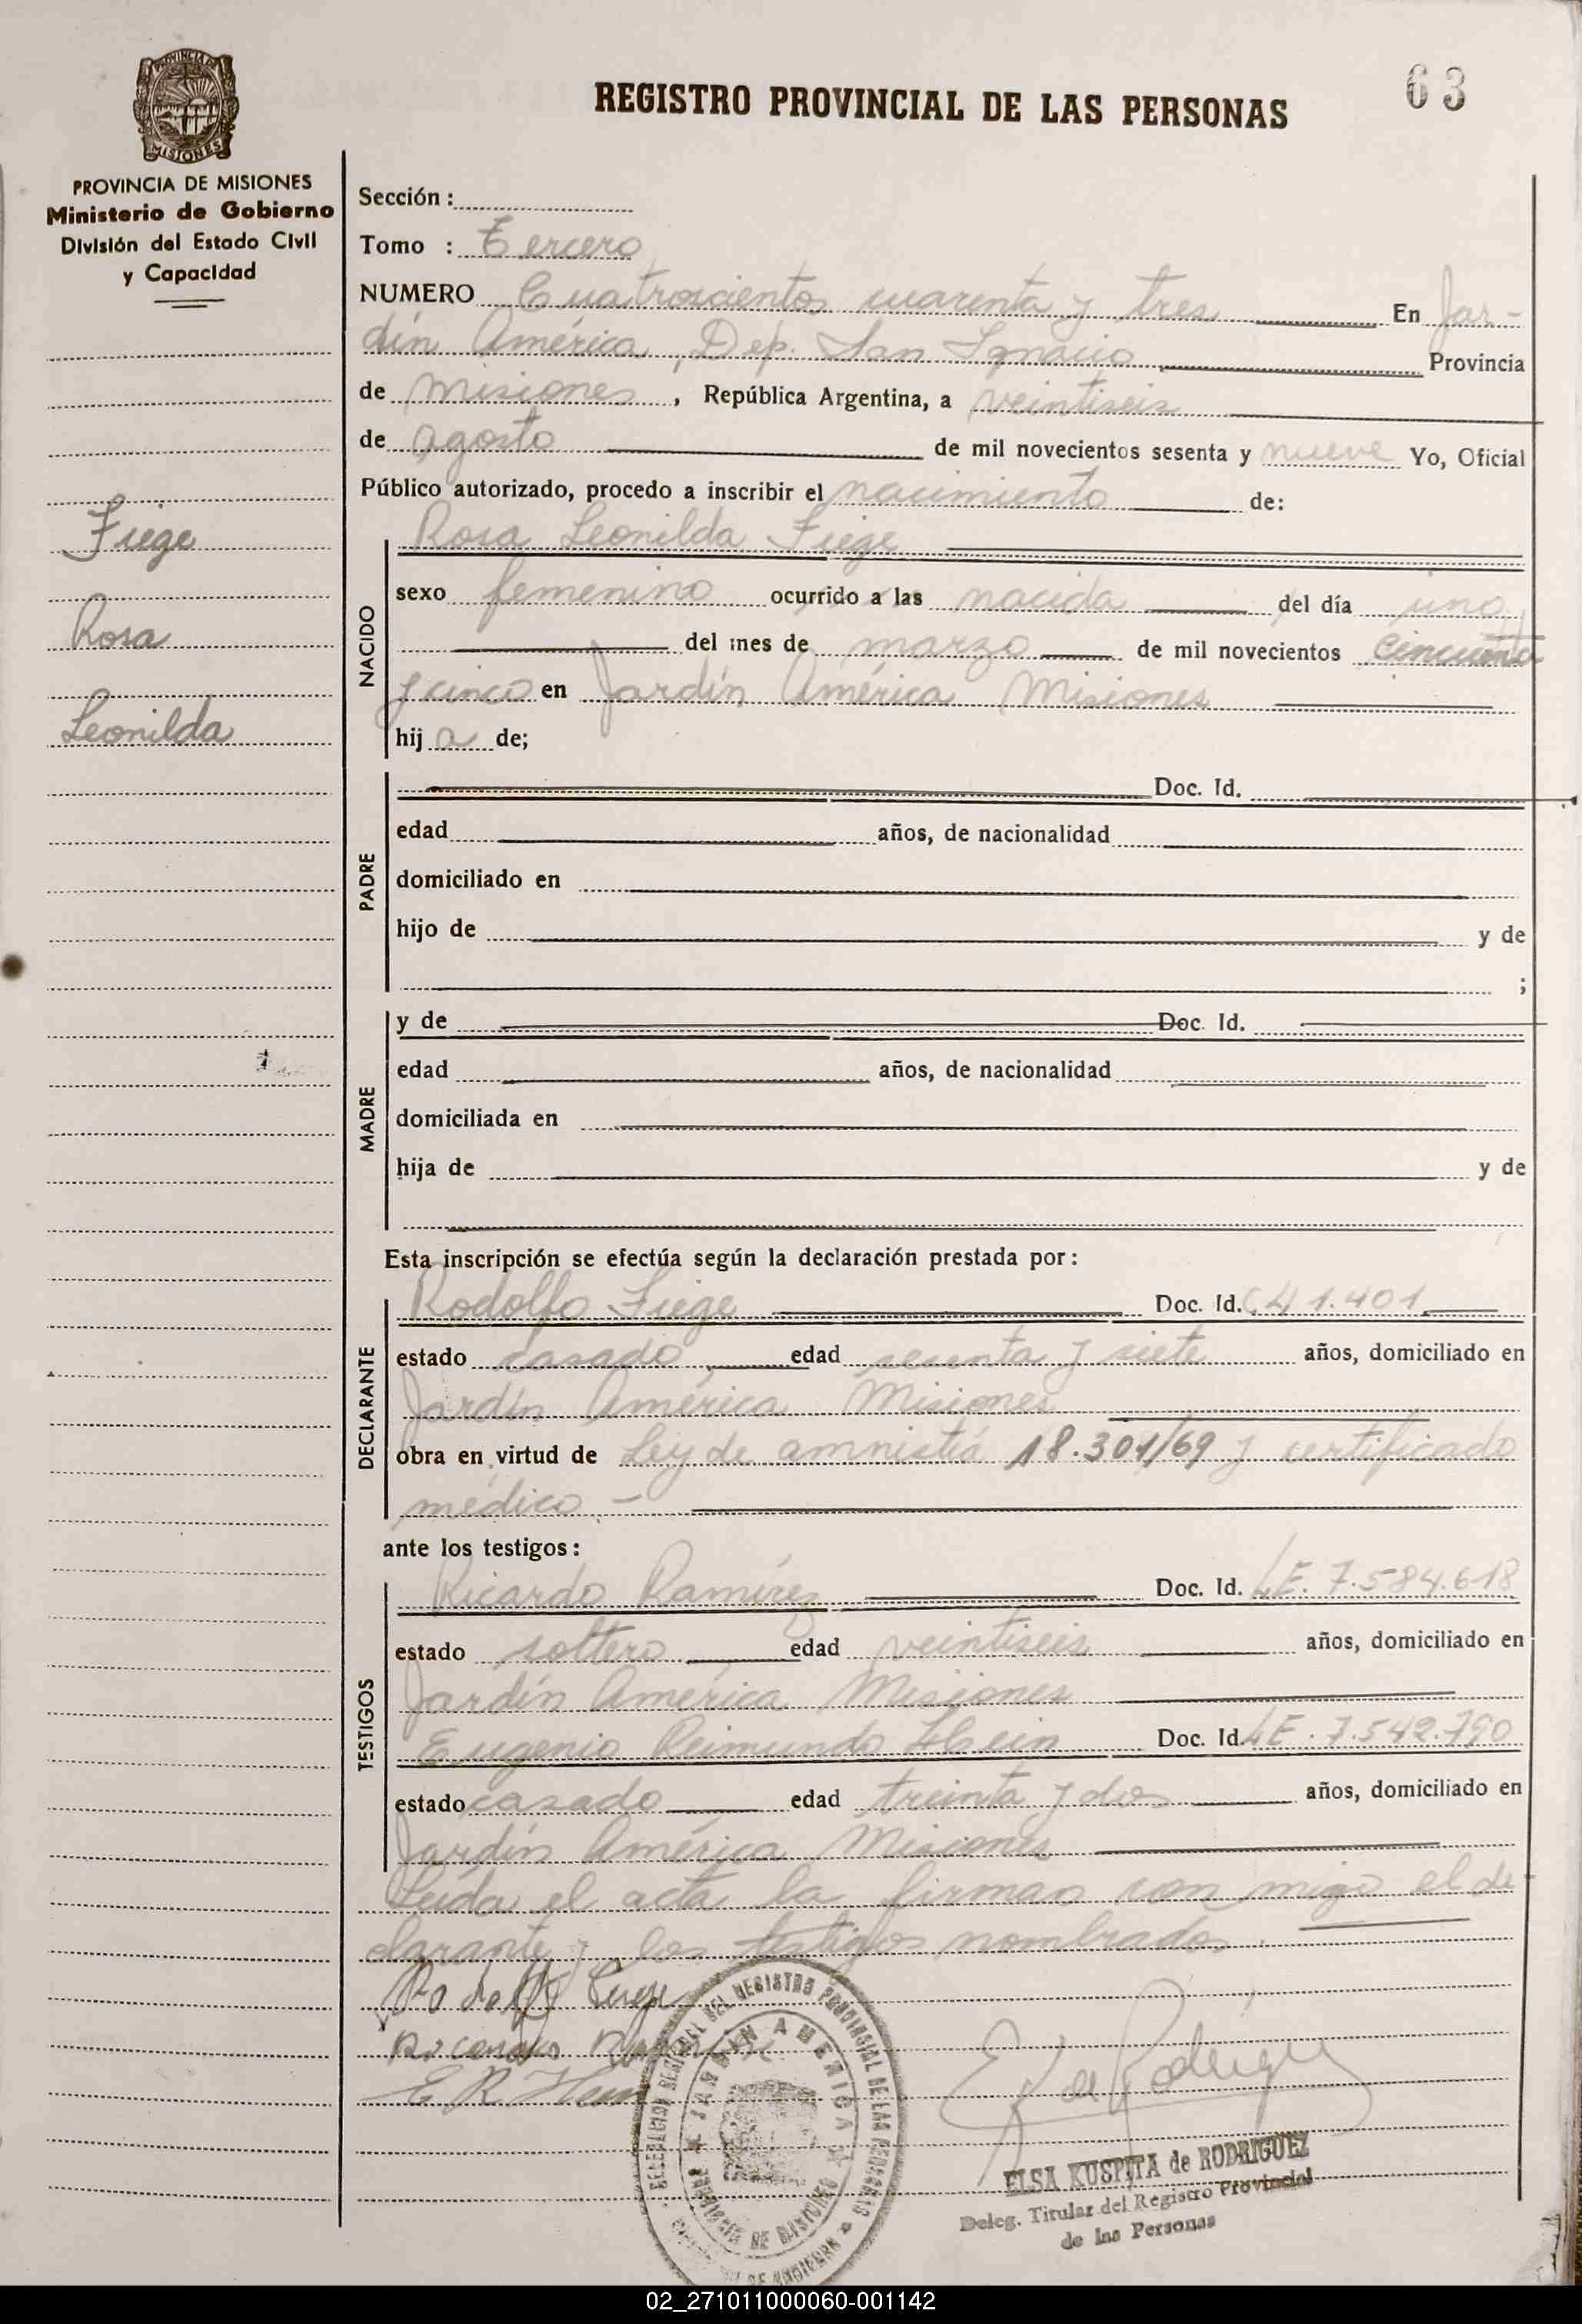 REGISTRO PROVINCIAL DE LAS PERSONAS
63
PROVINCIA DE MISIONES
MISIONES
PROVINCIA DE MISIONES
Ministerio de Gobierno
División del Estado Civil
y Capacidad
Fiege
Rosa
Leonilda
Sección :
Tomo : Tercero
NUMERO Cuatroscientos cuarenta y tres En Jar-
dín América, Dep. San Ignacio Provincia
de Misiones, República Argentina, a veintiseis
de agosto de mil novecientos sesenta y nueve Yo, Oficial
Público autorizado, procedo a inscribir el nacimiento de:
NACIDO
Rosa Leonilda Fiege
sexo femenino ocurrido a las nacida del día uno
del mes de marzo de mil novecientos cincuenta
y cinco en Jardín América Misiones
hija de;
PADRE
Doc. Id.
edad años, de nacionalidad
domiciliado en
hijo de y de
;
MADRE
y de Doc. Id.
edad años, de nacionalidad
domiciliada en
hija de y de
Esta inscripción se efectúa según la declaración prestada por:
DECLARANTE
Rodolfo Fiege Doc. Id. 41.401
estado casado edad sesenta y siete años, domiciliado en
Jardín América Misiones
obra en virtud de Ley de amnistía 18.301/69 y certificado
médico -
ante los testigos:
TESTIGOS
Ricardo Ramírez Doc. Id. L.E. 7.584.618
estado soltero edad veintiseis años, domiciliado en
Jardín América Misiones
Eugenio Reimundo Hein Doc. Id. L.E. 7.542.790
estado casado edad treinta y dos años, domiciliado en
Jardín América Misiones
Leída el acta la firman con migo el de-
clarante y los testigos nombrados.
Rodolfo Fiege
Ricardo Ramirez
E. R. Hein
DELEGACION DEL REGISTRO PROVINCIAL DE LAS PERSONAS
JARDIN AMERICA
PROVINCIA DE MISIONES
E K de Rodriguez
ELSA KUSPITA de RODRIGUEZ
Deleg. Titular del Registro Provincial
de las Personas
02_271011000060-001142